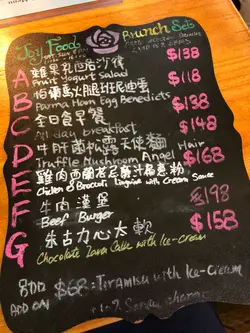 Joy Food
Brunch Sets
A 雜果乳酪沙律 $138
Fruit Yogurt Salad
B 帕爾馬火腿班尼迪蛋 $118
Parma Ham Egg Benedicts
C 全日餐早餐 $138
All day breakfast
D 牛肝菌松露天使麵 $148
Truffle Mushroom Angel Hair
E 雞肉西蘭花忌廉汁扁意粉 $168
Chicken & Broccoli Linguine with Cream Sauce
F 牛肉漢堡 $198
Beef Burger
G 朱古力心太軟 $158
Chocolate Lava Cake with Ice-Cream
ADD ON $68 : Tiramisu with Ice-Cream
+10% Service Charge